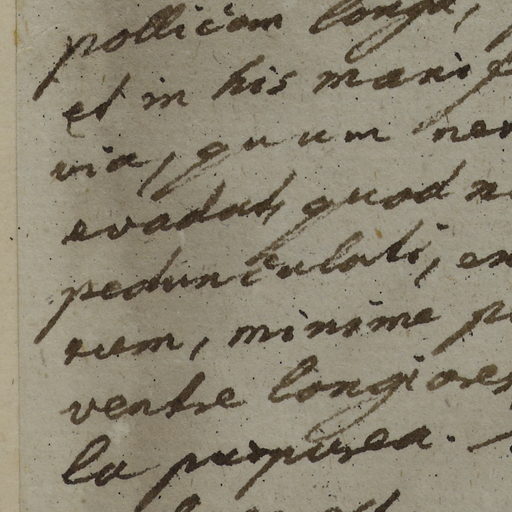 pollicem longa,
et in his mani
via, quum ner
evadat, quod n
pedunculati, en
rum, minime p
ventre longiores
la purpurea. —